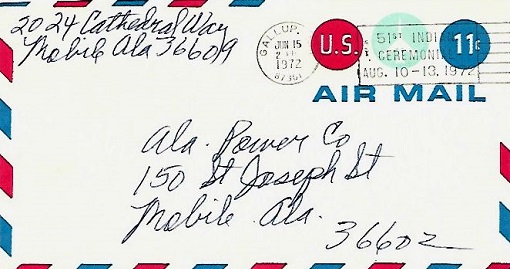 2024 Cathedral Way
Mobile Ala 36609
GALLUP,
JUN 15
1972
87301
U.S.
11¢
51ST INDI
CEREMONI
AUG. 10-13, 1972
AIR MAIL
Ala. Power Co
150 St Joseph St
Mobile Ala.
36602